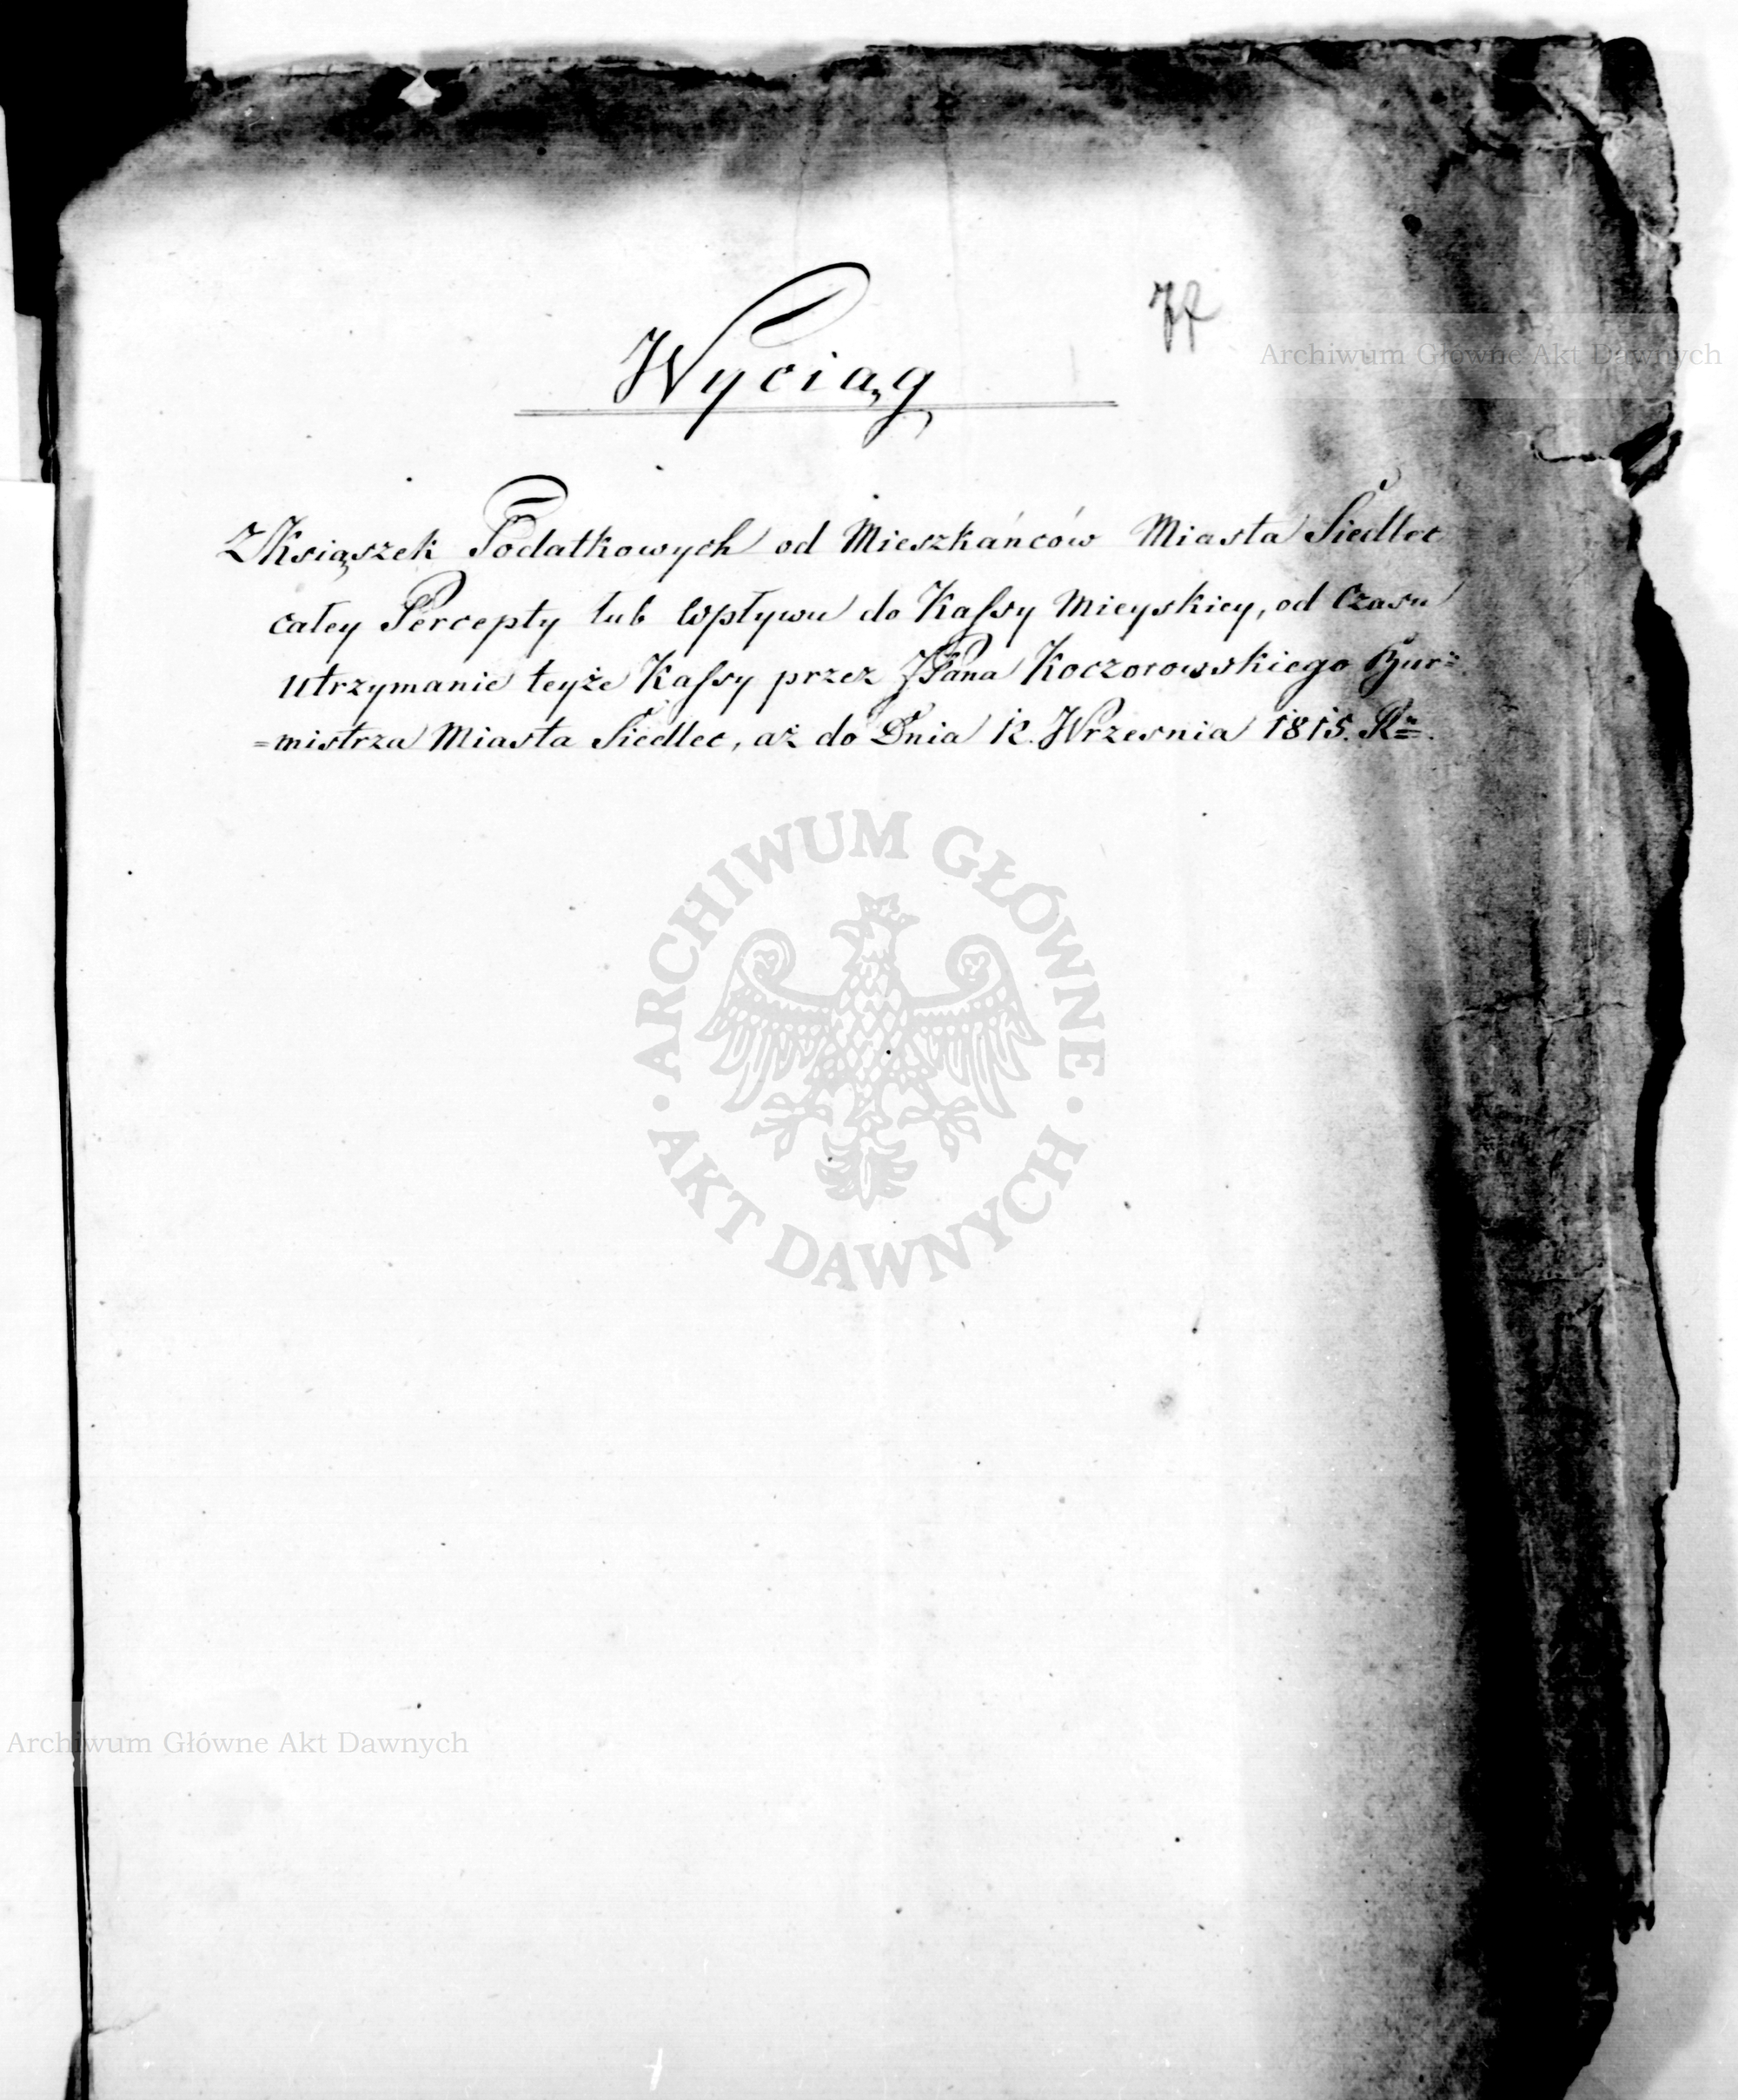 Archiwum Główne Akt Dawnych
Wyciąg
Z Książek Podatkowych od Mieszkańców Miasta Siedlec
całey Percepty lub Wpływu do Kassy Mieyskiey, od Czasu
utrzymanie teyże Kassy przez JPana Koczorowskiego Bur=
=mistrza Miasta Siedlec, aż do Dnia 12. Wrzesnia 1815. R.
ARCHIWUM GŁÓWNE AKT DAWNYCH
Archiwum Główne Akt Dawnych